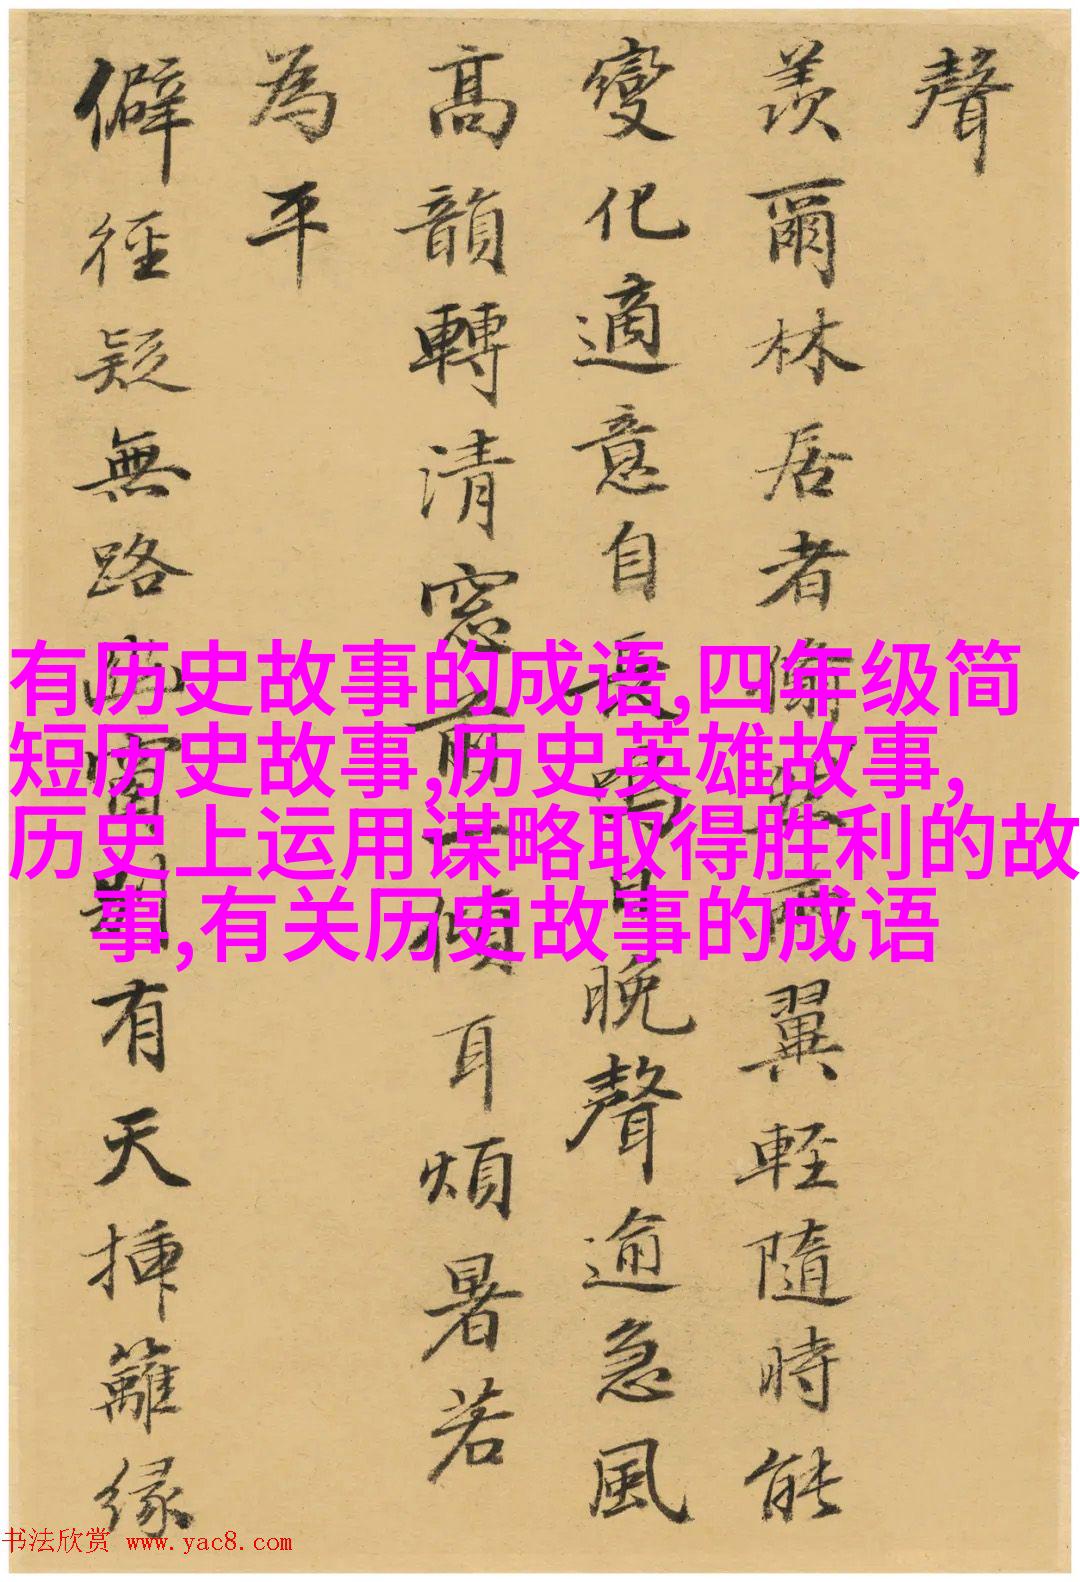 聲
羨爾林居者倦雙翼輕隨時能
變化適意自長鳴日晚聲逾急風
高韻轉清窓前一傾耳煩暑若
為平
僻徑疑無路有天揷籬緣
有历史故事的成语,四年级简
短历史故事,历史英雄故事,
历史上运用谋略取得胜利的故
事,有关历史故事的成语
书法欣赏 www.yac8.com